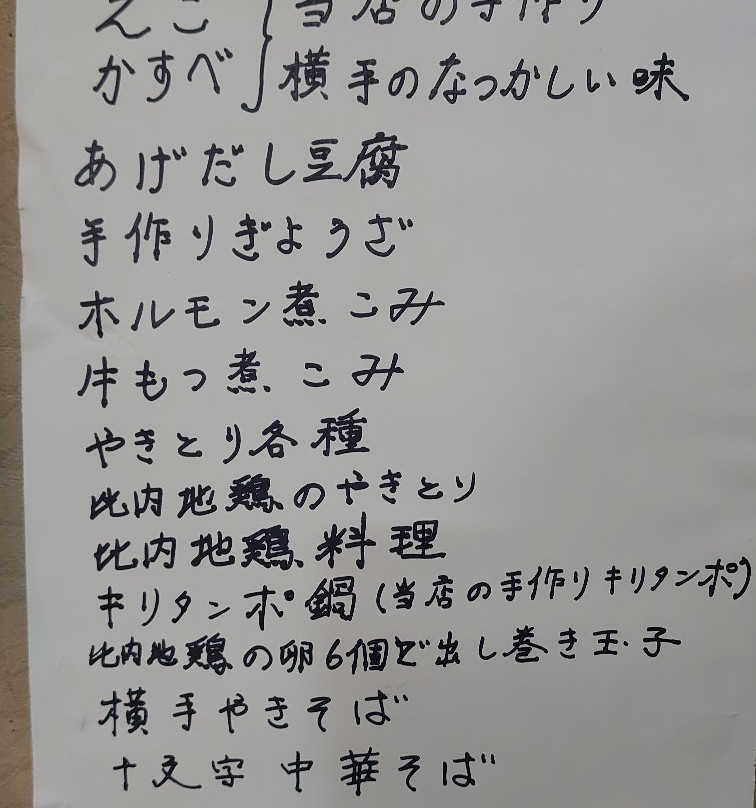 えご 当店の手作り
かすべ 横手のなつかしい味
あげだし豆腐
手作りぎょうざ
ホルモン煮こみ
牛もつ煮こみ
やきとり各種
比内地鶏のやきとり
比内地鶏料理
キリタンポ鍋(当店の手作りキリタンポ)
比内地鶏の卵6個で出し巻き玉子
横手やきそば
十文字中華そば